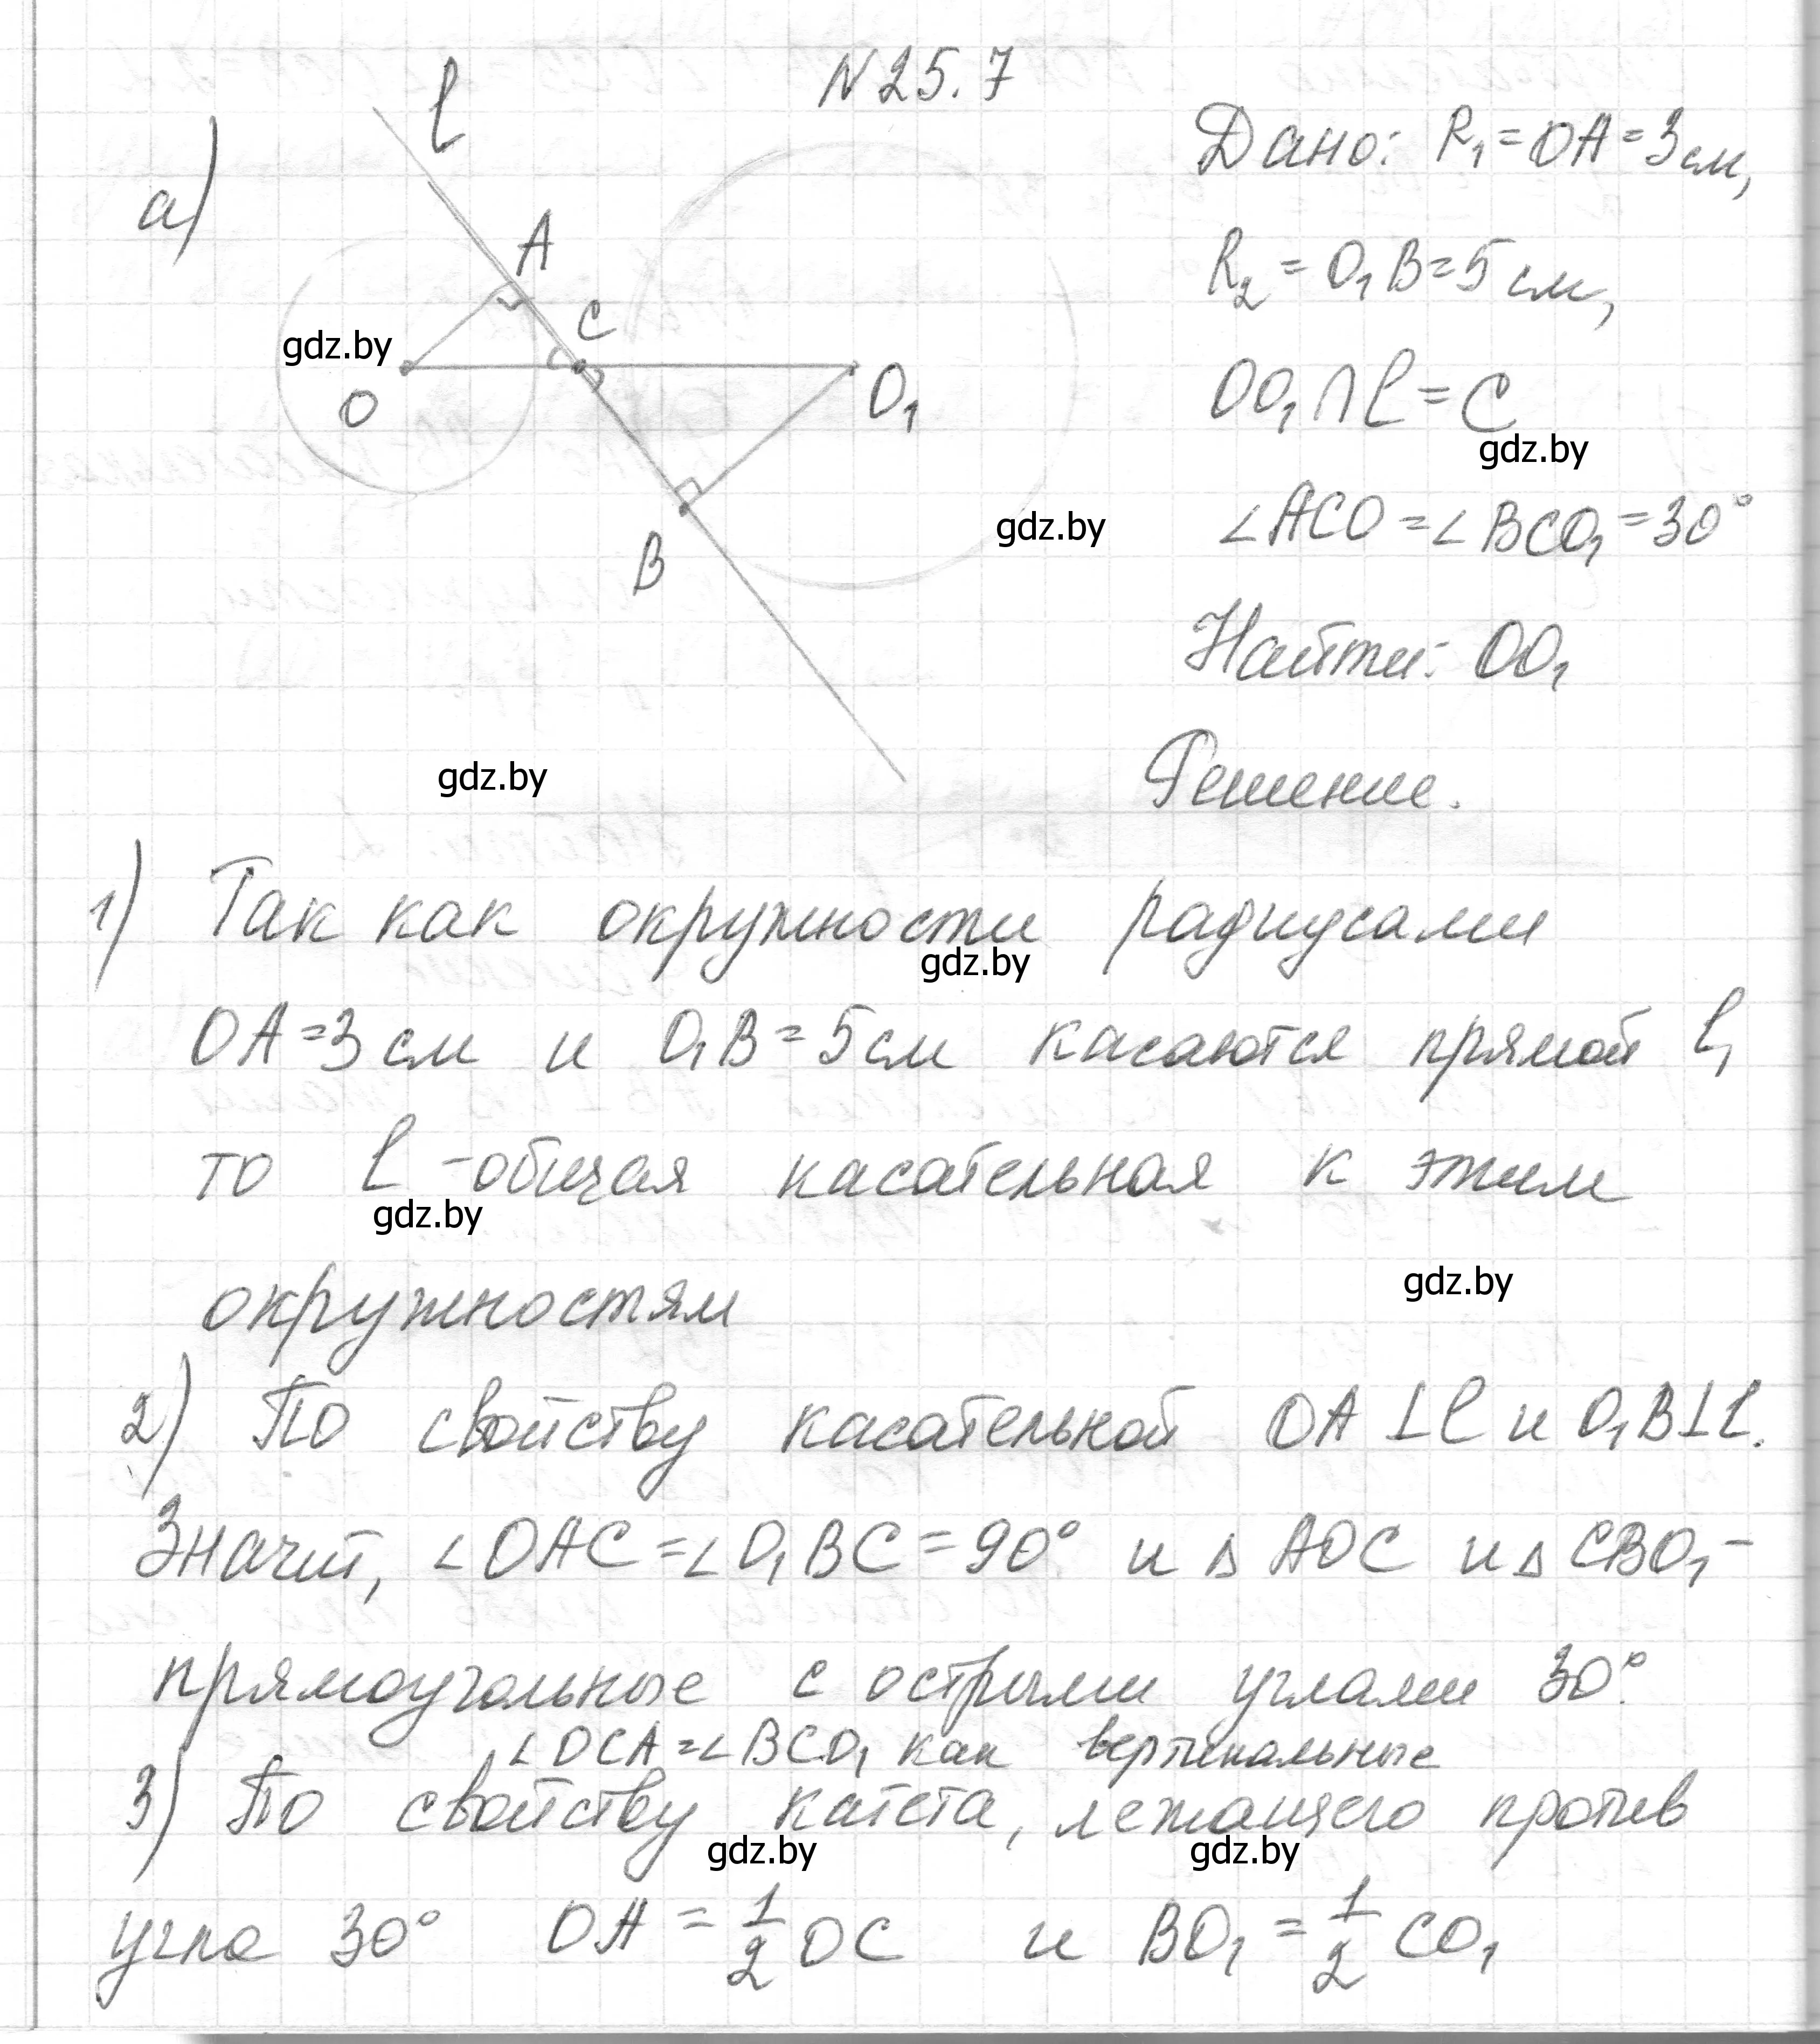 N 25.7
а)
l
A
C
O
O₁
B
Дано: R₁ = OA = 3 см,
R₂ = O₁B = 5 см,
OO₁ ∩ l = C
∠ACO = ∠BCO₁ = 30°
Найти: OO₁
Решение.
1) Так как окружности радиусами
OA = 3 см и O₁B = 5 см касаются прямой l,
то l - общая касательная к этим
окружностям
2) По свойству касательной OA ⊥ l и O₁B ⊥ l.
Значит, ∠OAC = ∠O₁BC = 90° и Δ AOC и Δ CBO₁ -
прямоугольные с острыми углами 30°.
∠OCA = ∠BCO₁ как вертикальные
3) По свойству катета, лежащего против
угла 30° OA = 1/2 OC и BO₁ = 1/2 CO₁
gdz.by
gdz.by
gdz.by
gdz.by
gdz.by
gdz.by
gdz.by
gdz.by
gdz.by